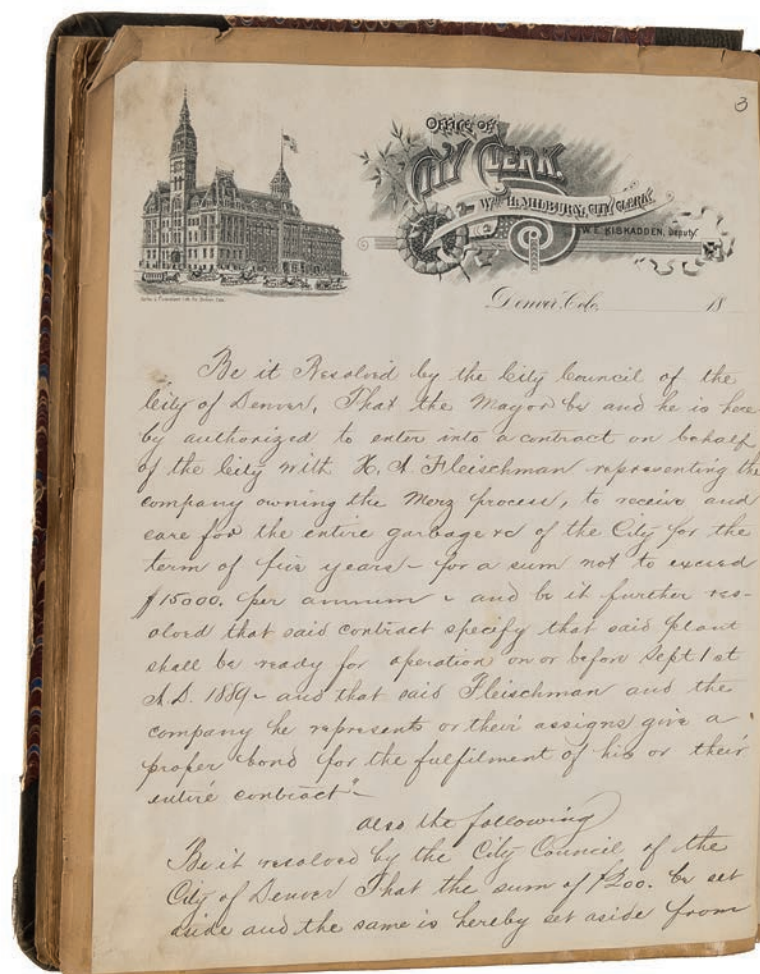 3
OFFICE OF
CITY CLERK.
WM. H. MILBURN, CITY CLERK.
W. E. KISKADDEN, Deputy.
Denver, Colo, 18
Be it Resolved by the City Council of the
City of Denver, That the Mayor be and he is here
by authorized to enter into a contract on behalf
of the City with H. A. Fleischman representing the
company owning the Merz process, to receive and
care for the entire garbage &c of the City for the
term of five years – for a sum not to exceed
$15000. per annum – and be it further res-
olved that said contract specify that said plant
shall be ready for operation on or before Sept 1st
A.D. 1889 – and that said Fleischman and the
company he represents or their assigns give a
proper bond for the fulfilment of his or their
entire contract" –
also the following
Be it resolved by the City Council of the
City of Denver That the sum of $200. be set
aside and the same is hereby set aside from